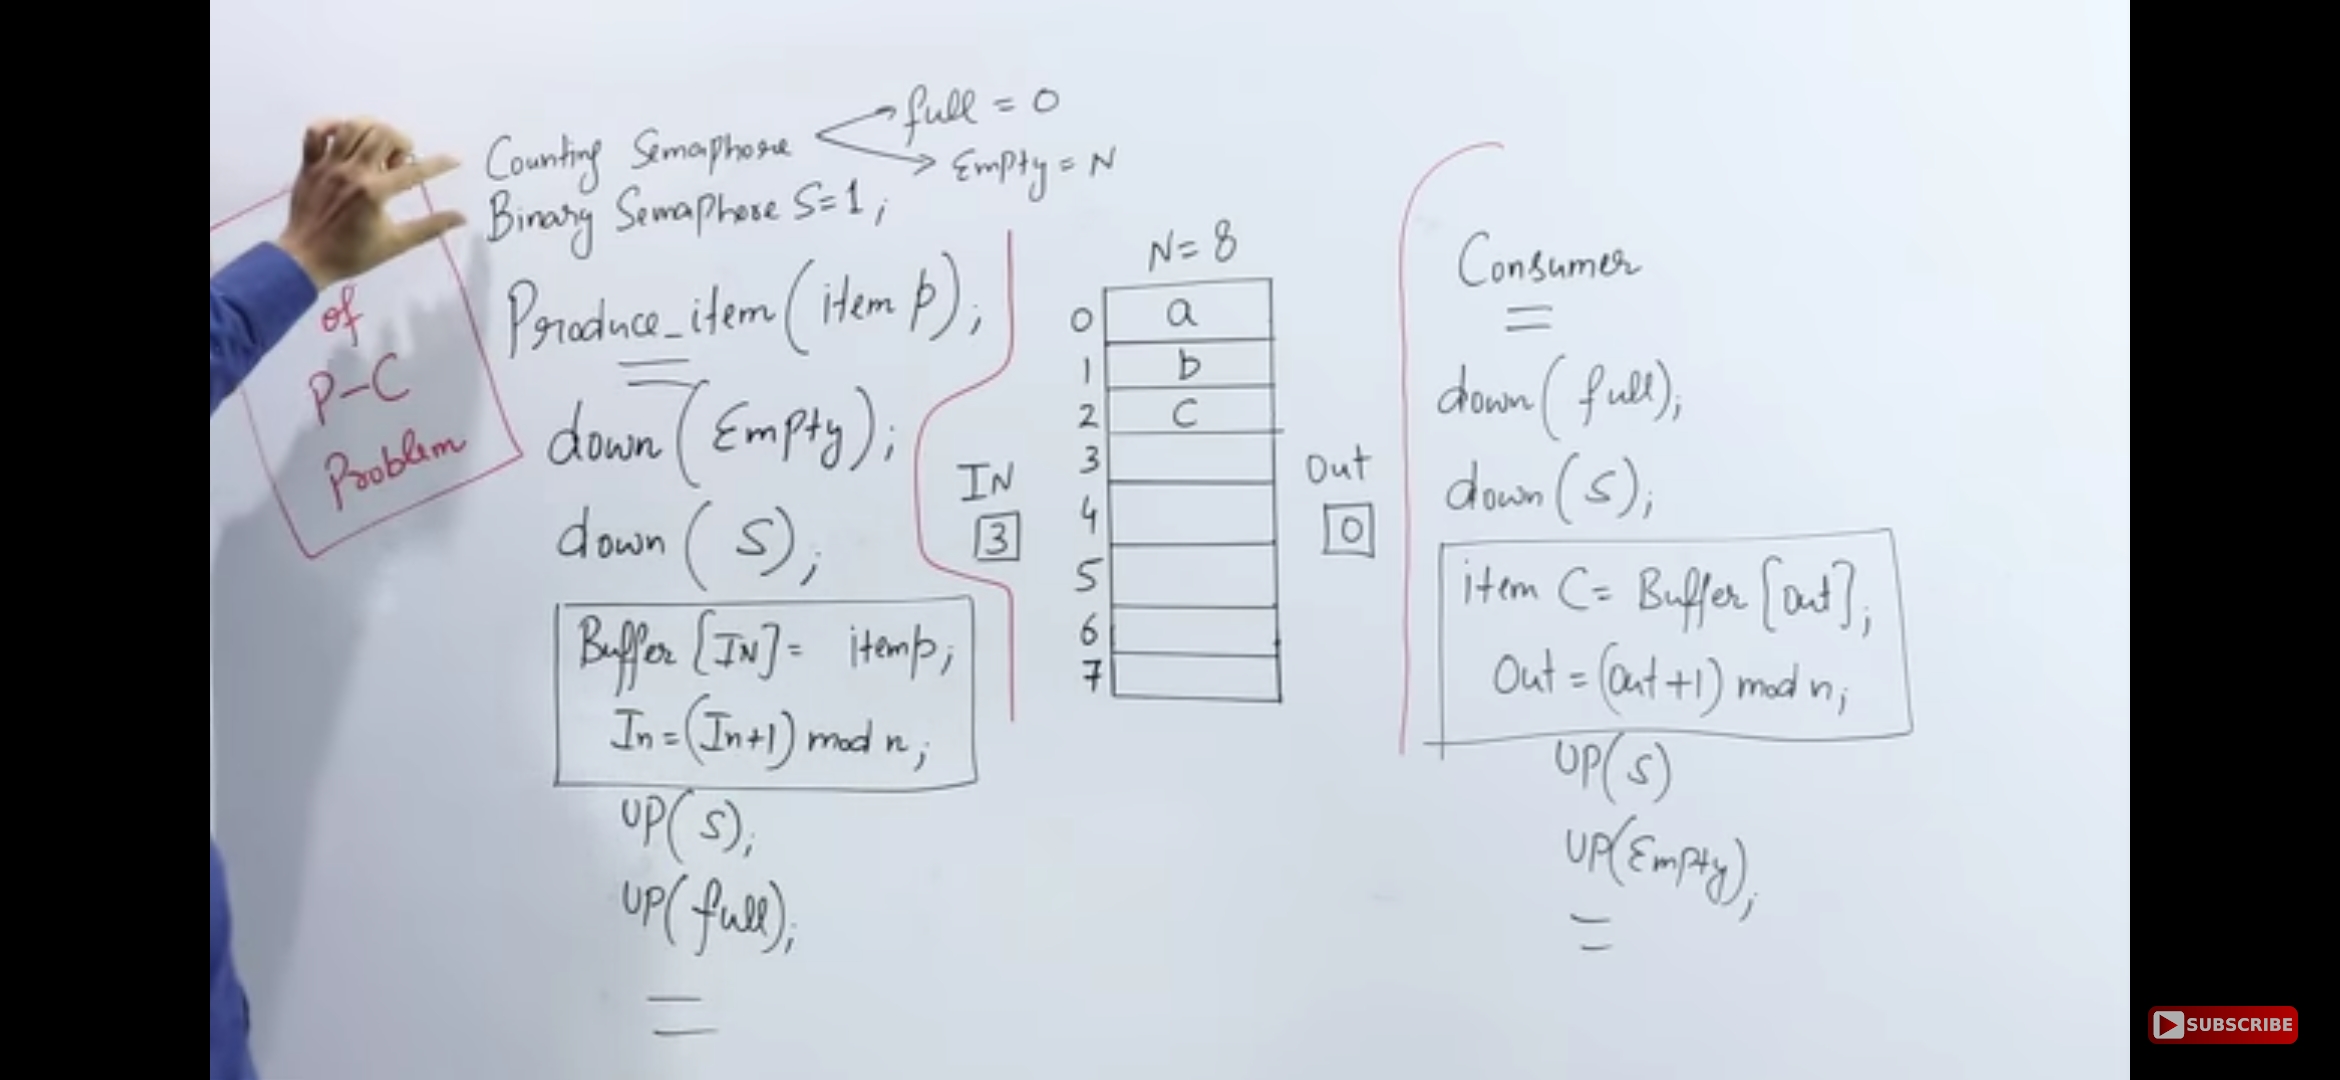 Counting Semaphore
full = 0
Empty = N
Binary Semaphore S=1;
of
P-C
Problem
Produce_item(item p);
down(Empty);
down(S);
Buffer[IN] = itemp;
In = (In+1) mod n;
UP(S);
UP(full);
IN
3
N=8
0 a
1 b
2 C
3
4
5
6
7
Out
0
Consumer
down(full);
down(S);
item C = Buffer[Out];
Out = (Out+1) mod n;
UP(S)
UP(Empty);
SUBSCRIBE